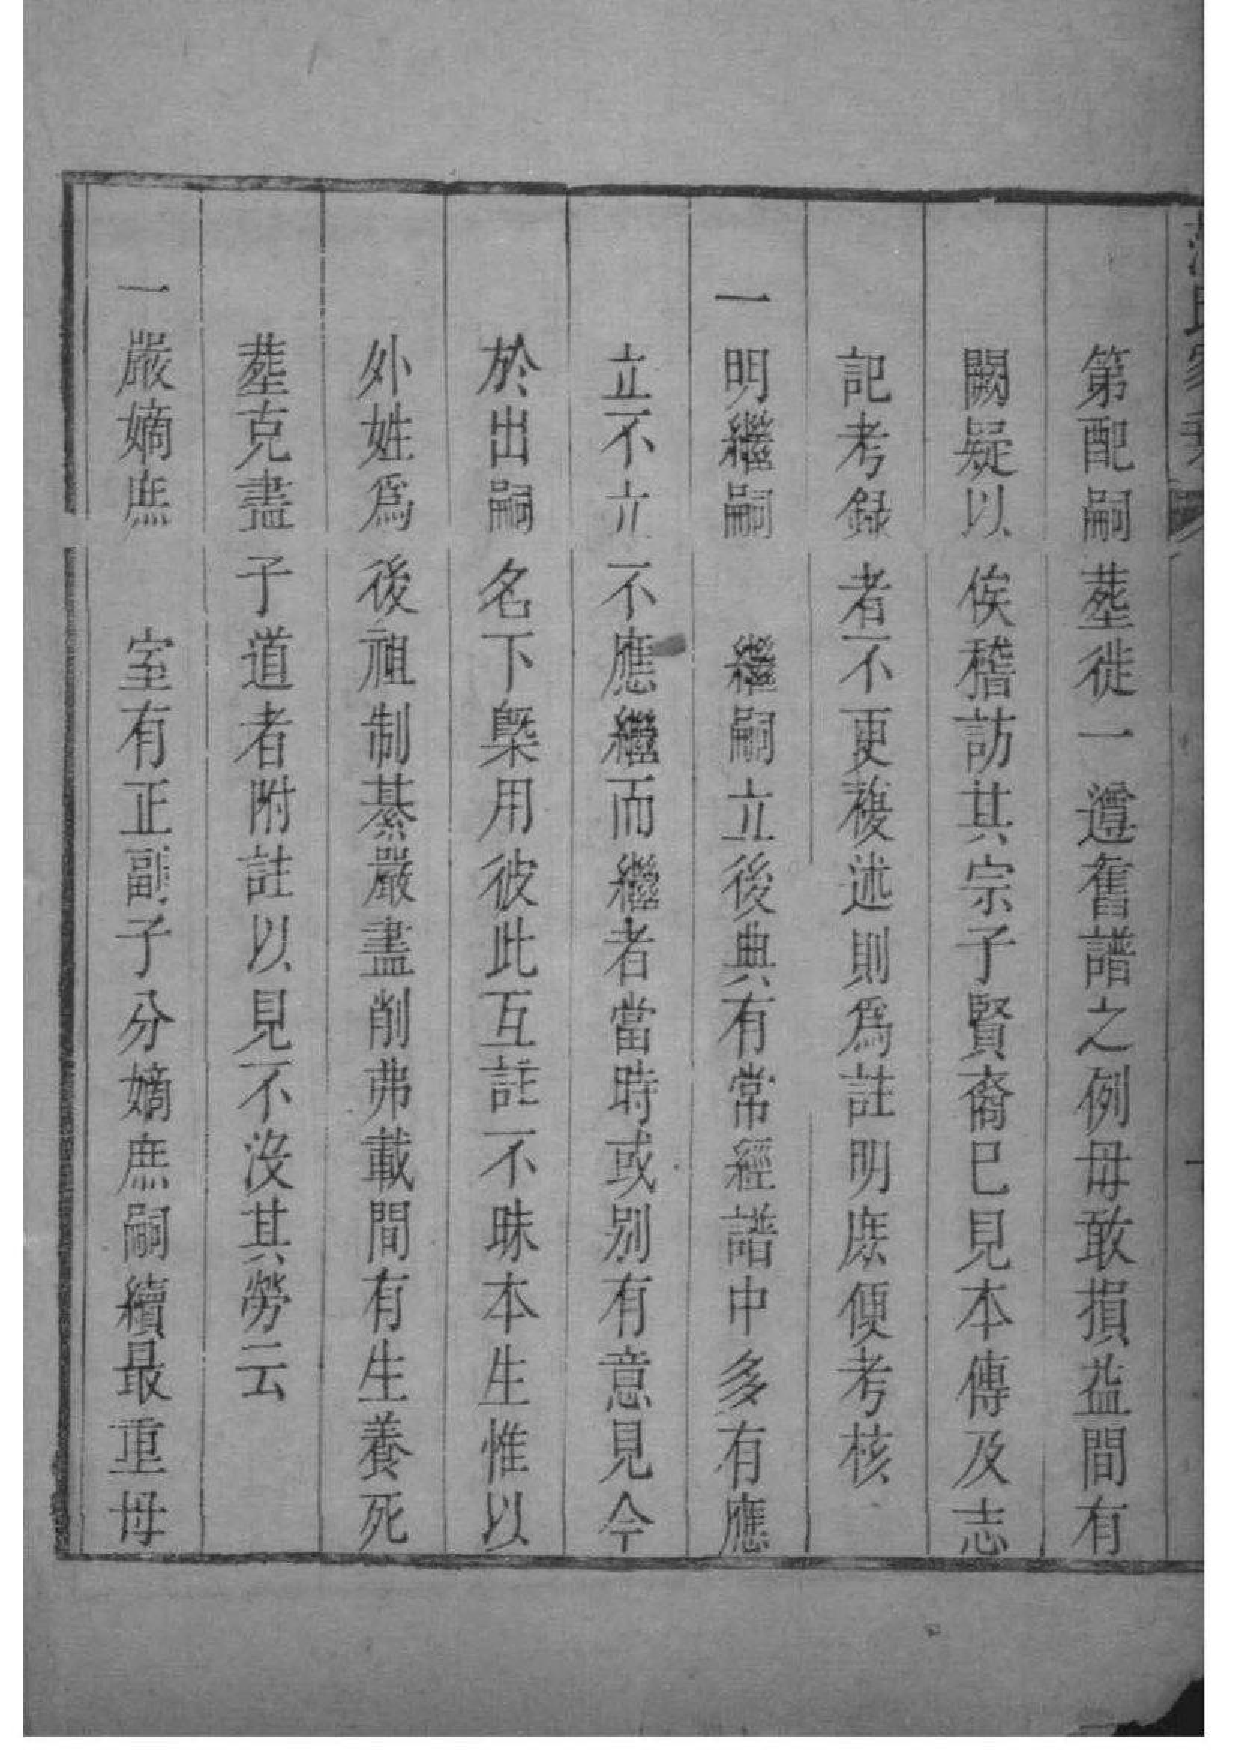 氏家乘
第配嗣葬徙一遵舊譜之例毋敢損益間有
闕疑以俟稽訪其宗子賢裔已見本傳及志
記考錄者不更複述則爲註明庶便考核
一明繼嗣 繼嗣立後典有常經譜中多有應
立不立不應繼而繼者當時或别有意見今
於出嗣名下槩用彼此互註不昧本生惟以
外姓爲後祖制綦嚴盡削弗載間有生養死
葬克盡子道者附註以見不沒其勞云
一嚴嫡庶 室有正副子分嫡庶嗣續最重毋